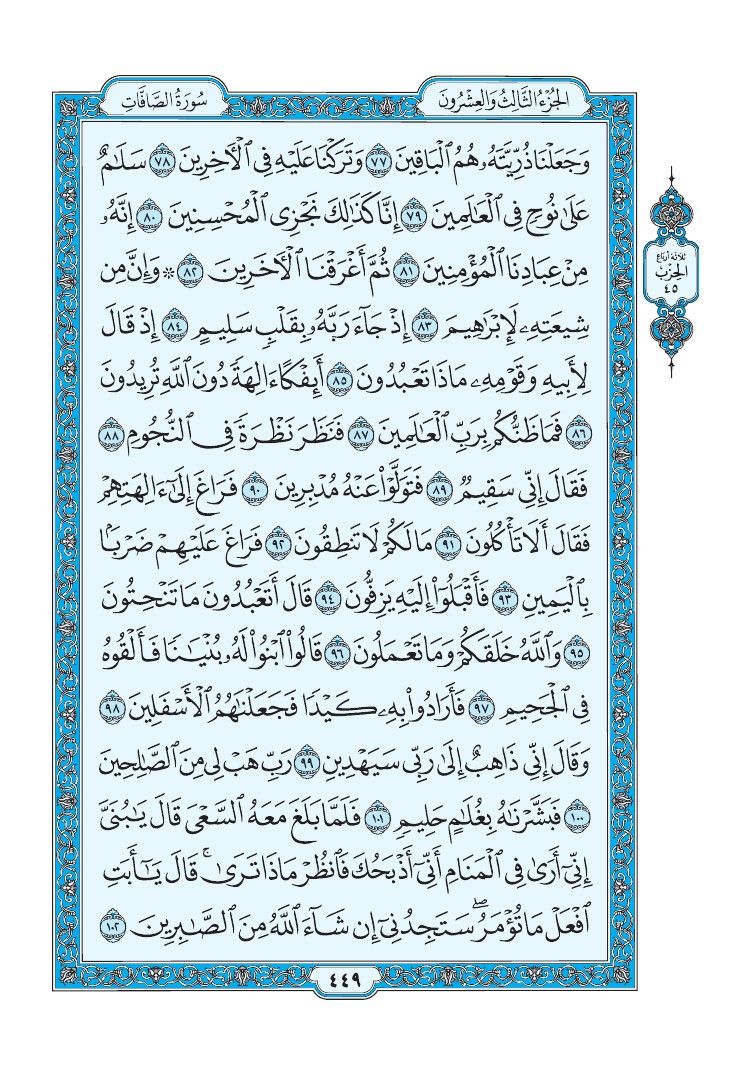 سُورَةُ الصَّافَّاتِ
الجُزْءُ الثَّالِثُ وَالعِشْرُونَ
وَجَعَلْنَا ذُرِّيَّتَهُۥ هُمُ ٱلْبَاقِينَ ٧٧ وَتَرَكْنَا عَلَيْهِ فِى ٱلْأٓخِرِينَ ٧٨ سَلَٰمٌ
عَلَىٰ نُوحٍ فِى ٱلْعَٰلَمِينَ ٧٩ إِنَّا كَذَٰلِكَ نَجْزِى ٱلْمُحْسِنِينَ ٨٠ إِنَّهُۥ
مِنْ عِبَادِنَا ٱلْمُؤْمِنِينَ ٨١ ثُمَّ أَغْرَقْنَا ٱلْأٓخَرِينَ ٨٢ ۞ وَإِنَّ مِن
شِيعَتِهِۦ لَإِبْرَٰهِيمَ ٨٣ إِذْ جَآءَ رَبَّهُۥ بِقَلْبٍ سَلِيمٍ ٨٤ إِذْ قَالَ
لِأَبِيهِ وَقَوْمِهِۦ مَاذَا تَعْبُدُونَ ٨٥ أَئِفْكًا ءَالِهَةً دُونَ ٱللَّهِ تُرِيدُونَ
٨٦ فَمَا ظَنُّكُم بِرَبِّ ٱلْعَٰلَمِينَ ٨٧ فَنَظَرَ نَظْرَةً فِى ٱلنُّجُومِ ٨٨
فَقَالَ إِنِّى سَقِيمٌ ٨٩ فَتَوَلَّوْا۟ عَنْهُ مُدْبِرِينَ ٩٠ فَرَاغَ إِلَىٰٓ ءَالِهَتِهِمْ
فَقَالَ أَلَا تَأْكُلُونَ ٩١ مَا لَكُمْ لَا تَنطِقُونَ ٩٢ فَرَاغَ عَلَيْهِمْ ضَرْبًۢا
بِٱلْيَمِينِ ٩٣ فَأَقْبَلُوٓا۟ إِلَيْهِ يَزِفُّونَ ٩٤ قَالَ أَتَعْبُدُونَ مَا تَنْحِتُونَ
٩٥ وَٱللَّهُ خَلَقَكُمْ وَمَا تَعْمَلُونَ ٩٦ قَالُوا۟ ٱبْنُوا۟ لَهُۥ بُنْيَٰنًا فَأَلْقُوهُ
فِى ٱلْجَحِيمِ ٩٧ فَأَرَادُوا۟ بِهِۦ كَيْدًا فَجَعَلْنَٰهُمُ ٱلْأَسْفَلِينَ ٩٨
وَقَالَ إِنِّى ذَاهِبٌ إِلَىٰ رَبِّى سَيَهْدِينِ ٩٩ رَبِّ هَبْ لِى مِنَ ٱلصَّٰلِحِينَ
١٠٠ فَبَشَّرْنَٰهُ بِغُلَٰمٍ حَلِيمٍ ١٠١ فَلَمَّا بَلَغَ مَعَهُ ٱلسَّعْىَ قَالَ يَٰبُنَىَّ
إِنِّىٓ أَرَىٰ فِى ٱلْمَنَامِ أَنِّىٓ أَذْبَحُكَ فَٱنظُرْ مَاذَا تَرَىٰ ۚ قَالَ يَٰٓأَبَتِ
ٱفْعَلْ مَا تُؤْمَرُ ۖ سَتَجِدُنِىٓ إِن شَآءَ ٱللَّهُ مِنَ ٱلصَّٰبِرِينَ ١٠٢
ثلاثة أرباع
الحزب
٤٥
٤٤٩